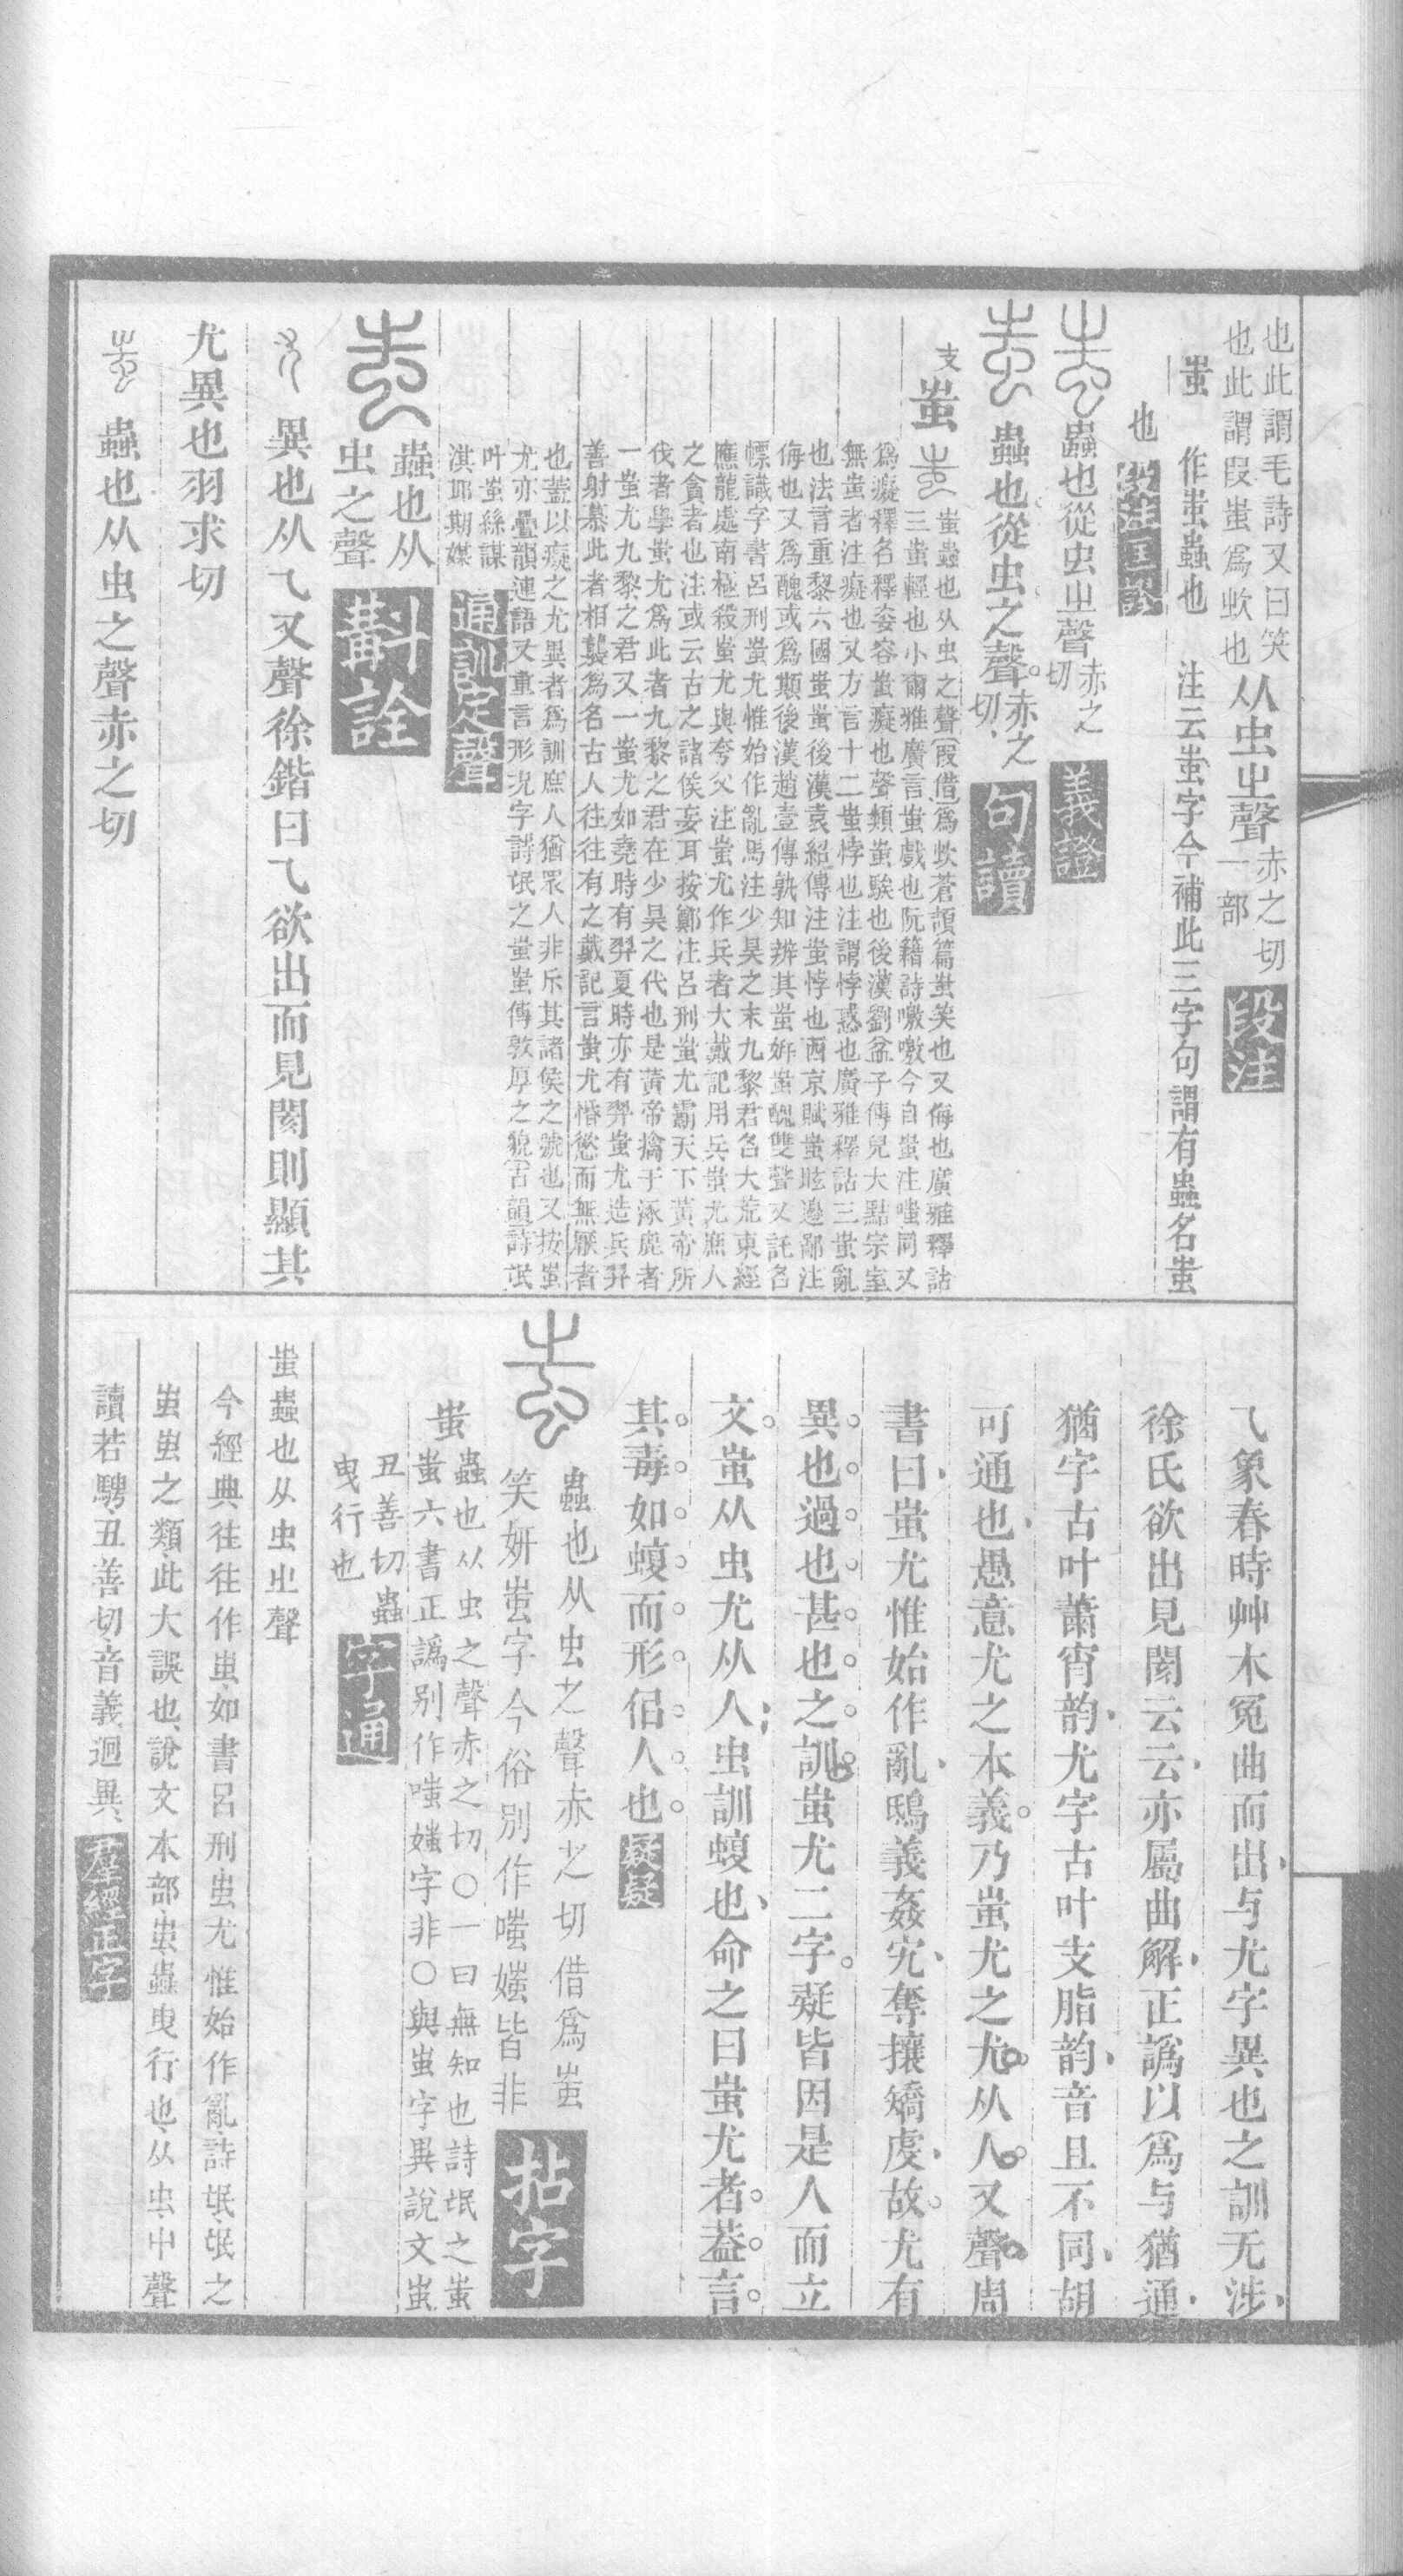 也此謂毛詩又曰笑
也此謂叚蚩爲蚩也
从虫㞢聲
赤之切
一部
段注
蚩 作蚩蟲也 注云蚩字今補此三字句謂有蟲名蚩
也
段注匡謬
蟲也從虫㞢聲
赤之
切
義證
蟲也從虫之聲。
赤之
切
句讀
支
蚩
蚩蟲也从虫之聲(叚借)爲㰞蒼頡篇蚩笑也又侮也廣雅釋詁
三蚩輕也小爾雅廣言蚩戲也阮籍詩噭噭今自蚩注嗤同又
爲癡釋名釋姿容蚩癡也聲類蚩騃也後漢劉盆子傳兒大黠宗室
無蚩者注癡也又方言十二蚩悖也注謂悖惑也廣雅釋詁三蚩亂
也法言重黎六國蚩蚩後漢袁紹傳注蚩悖也西京賦蚩眩邊鄙注
侮也又爲醜或爲顡後漢趙壹傳孰知辨其蚩妍蚩醜雙聲又託名
幖識字書呂刑蚩尤惟始作亂馬注少昊之末九黎君名大荒東經
應龍處南極殺蚩尤與夸父注蚩尤作兵者大戴記用兵蚩尤庶人
之貪者也注或云古之諸侯妄耳按鄭注呂刑蚩尤霸天下黃帝所
伐者學蚩尤爲此者九黎之君在少昊之代也是黃帝擒于涿鹿者
一蚩尤九黎之君又一蚩尤如堯時有羿夏時亦有羿蚩尤造兵羿
善射慕此者相襲爲名古人往往有之戴記言蚩尤惽慾而無厭者
也蓋以癡之尤異者爲訓庶人猶眾人非斥其諸侯之號也又按蚩
尤亦疊韻連語又重言形況字詩氓之蚩蚩傳敦厚之貌(古韻)詩氓
叶蚩絲謀
淇邱期媒
通訓定聲
蟲也从
虫之聲
斠詮
異也从乁又聲徐鍇曰乁欲出而見閡則顯其
尤異也羽求切
蟲也从虫之聲赤之切
乁象春時艸木冤曲而出、与尤字異也之訓无涉、
徐氏欲出見閡云云、亦屬曲解、正譌以爲与猶通、
猶字古叶蕭宵韵、尤字古叶支脂韵、音且不同、胡
可通也、愚意尤之本義。乃蚩尤之尤。从人。又聲。周
書曰、蚩尤惟始作亂、鴟義姦宄、奪攘矯虔、故尤有
異也。過也。甚也。之訓。蚩尤二字。疑皆因是人而立
文。蚩从虫尤从人、虫訓蝮也、命之曰蚩尤者。葢言。
其。毒。如。蝮。而。形。侣。人。也。
疑疑
蟲也从虫之聲赤之切借爲蚩
笑妍蚩字今俗別作嗤媸皆非
拈字
蚩
蟲也从虫之聲赤之切〇一曰無知也詩氓之蚩
蚩六書正譌別作嗤媸字非〇與蚩字異說文蚩
丑善切蟲
曳行也
字通
蚩蟲也从虫㞢聲
今經典往往作蚩、如書呂刑蚩尤惟始作亂、詩氓、氓之
蚩蚩之類、此大誤也、說文本部、蚩、蟲曳行也、从虫、屮聲
讀若騁、丑善切、音義迥異、
羣經正字